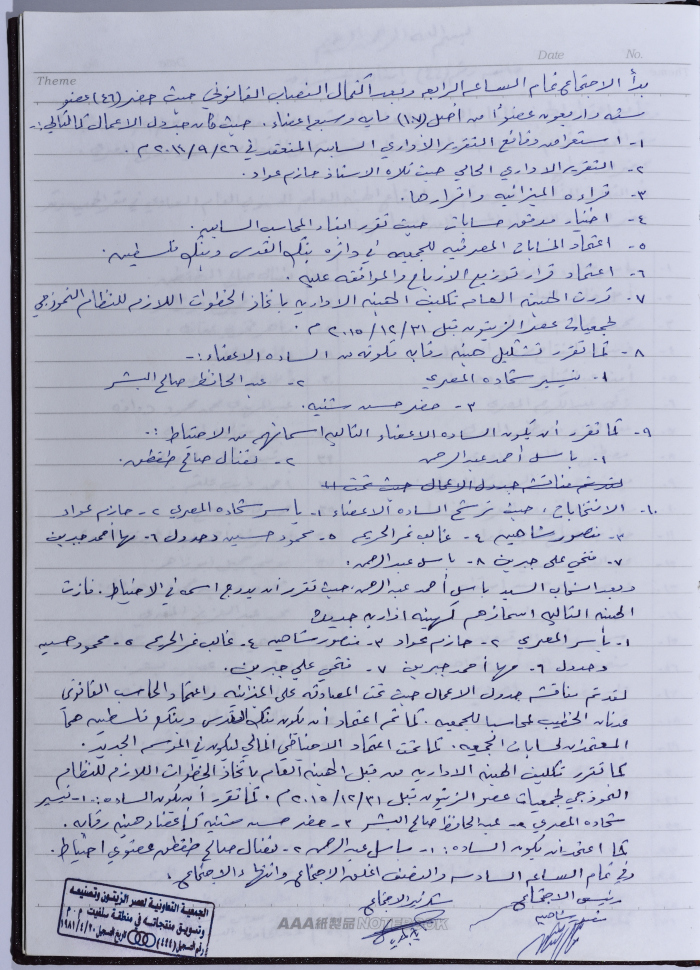 Date No.
Theme
بدأ الاجتماع تمام الساعة الرابعة وبعد اكتمال النصاب القانوني حيث حضر (٤٦) عضو
ستة واربعون عضواً من أصل (١٠٧) مايه وسبعة اعضاء. حيث كان جدول الاعمال كالتالي:-
١- استعراض وقائع التقرير الاداري السابق المنعقد في ٢٦/٩/٢٠١١م.
٢- التقرير الاداري الحالي حيث تلاه الاستاذ حازم عواد.
٣- قراءه الميزانيه واقرارها.
٤- اختيار مدقق حسابات. حيث تقرر ابقاء المحاسب السابق.
٥- اعتماد الحسابات المصرفيه للجمعيه في دائره بنك القدس وبنك فلسطين.
٦- اعتماد قرار توزيع الارباح والموافقه عليه.
٧- قررت الهيئة العامه تكليف الهيئه الاداريه باتخاذ الخطوات اللازمه للنظام النموذجي
لجمعيات عصر الزيتون قبل ٣١/١٢/٢٠١٥م.
٨- كما تقرر تشكيل هيئه رقابه مكونه من الساده الاعضاء:-
١- تيسير شحاده المصري ٢- عبدالحافظ صالح البشر
٣- خضر حسن شتيه.
٩- كما تقرر أن يكون الساده الاعضاء التاليه اسمائهم من الاحتياط:.
١- باسل أحمد عبدالرحمن ٢- نضال صالح طقطق.
لقد تم مناقشة جدول الاعمال حيث تمت
١٠- الانتخابات: حيث ترشح الساده الاعضاء ١- ياسر شحاده المصري ٢- حازم عواد
٣- منصور شاهين ٤- غالب نمر الحريم ٥- محمود حسين وحدول ٦- مها أحمد جبرين
٧- فتحي علي جبرين ٨- باسل عبدالرحمن.
وبعد انسحاب السيد باسل أحمد عبدالرحمن حيث تقرر أن يدرج اسمه في الاحتياط. فازت
الهيئه التاليه اسمائهم كهيئه اداريه جديده
١- ياسر المصري ٢- حازم عواد ٣- منصور شاهين ٤- غالب نمر الحريم ٥- محمود حسين
وحدول ٦- مها أحمد جبرين ٧- فتحي علي جبرين.
لقد تم مناقشه جدول الاعمال حيث تمت المصادقه على الميزانيه واعتماد المحاسب القانوني
عدنان الخطيب محاسبا للجمعيه. كما تم اعتماد أن يكون بنك القدس وبنك فلسطين هما
المعتمدان لحسابات الجمعيه. كما تمت اعتماد الاحتياطي المالي ليكون في الموسم الجديد.
كما تقرر تكليف الهيئه الاداريه من قبل الهيئه العامه باتخاذ الخطوات اللازمه للنظام
النموذجي لجمعيات عصر الزيتون قبل ٣١/١٢/٢٠١٥م. كما تقرر أن يكون الساده:. ١- تيسير
شحاده المصري ٢- عبدالحافظ صالح البشر ٣- خضر حسن شتيه كاعضاء هيئه رقابه.
كما اعتمد أن يكون الساده:. ١- باسل عبدالرحمن ٢- نضال صالح طقطق عضوي احتياط.
وفي تمام الساعه السادسه والنصف اغلق الاجتماع وانتهاء الاجتماع.
رئيس الاجتماع سكرتير الاجتماع
منصور شاهين
الجمعية التعاونية لعصر الزيتون وتصنيعه
وتسويق منتجاته في منطقة سلفيت م.م
رقم التسجيل (٤٤٤) تاريخ التسجيل ١٩٨١/٤/٢٠
AAA紙製品 NOTEBOOK